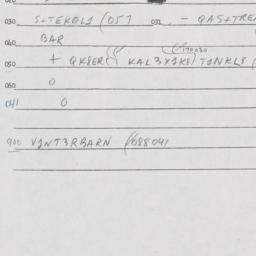 030 S+TEKOL1 (057 032 . - QAS+TRE
040 BAR
050 + QK8ER KAL3X1K8) T1NKL8
060 0
041 0
900 V1NT3RBARN (088041